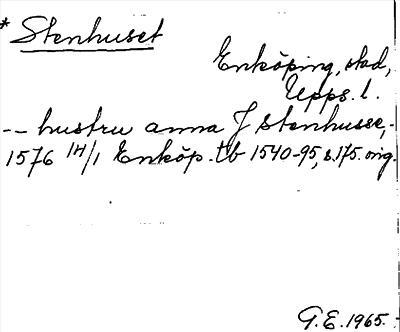 * Stenhuset
Enköping, stad,
Upps. l.
-- hustru anna J stenhusse,-
1576 14/1 Enköp. tb 1540-95, s. 175. orig.
G.E. 1965.